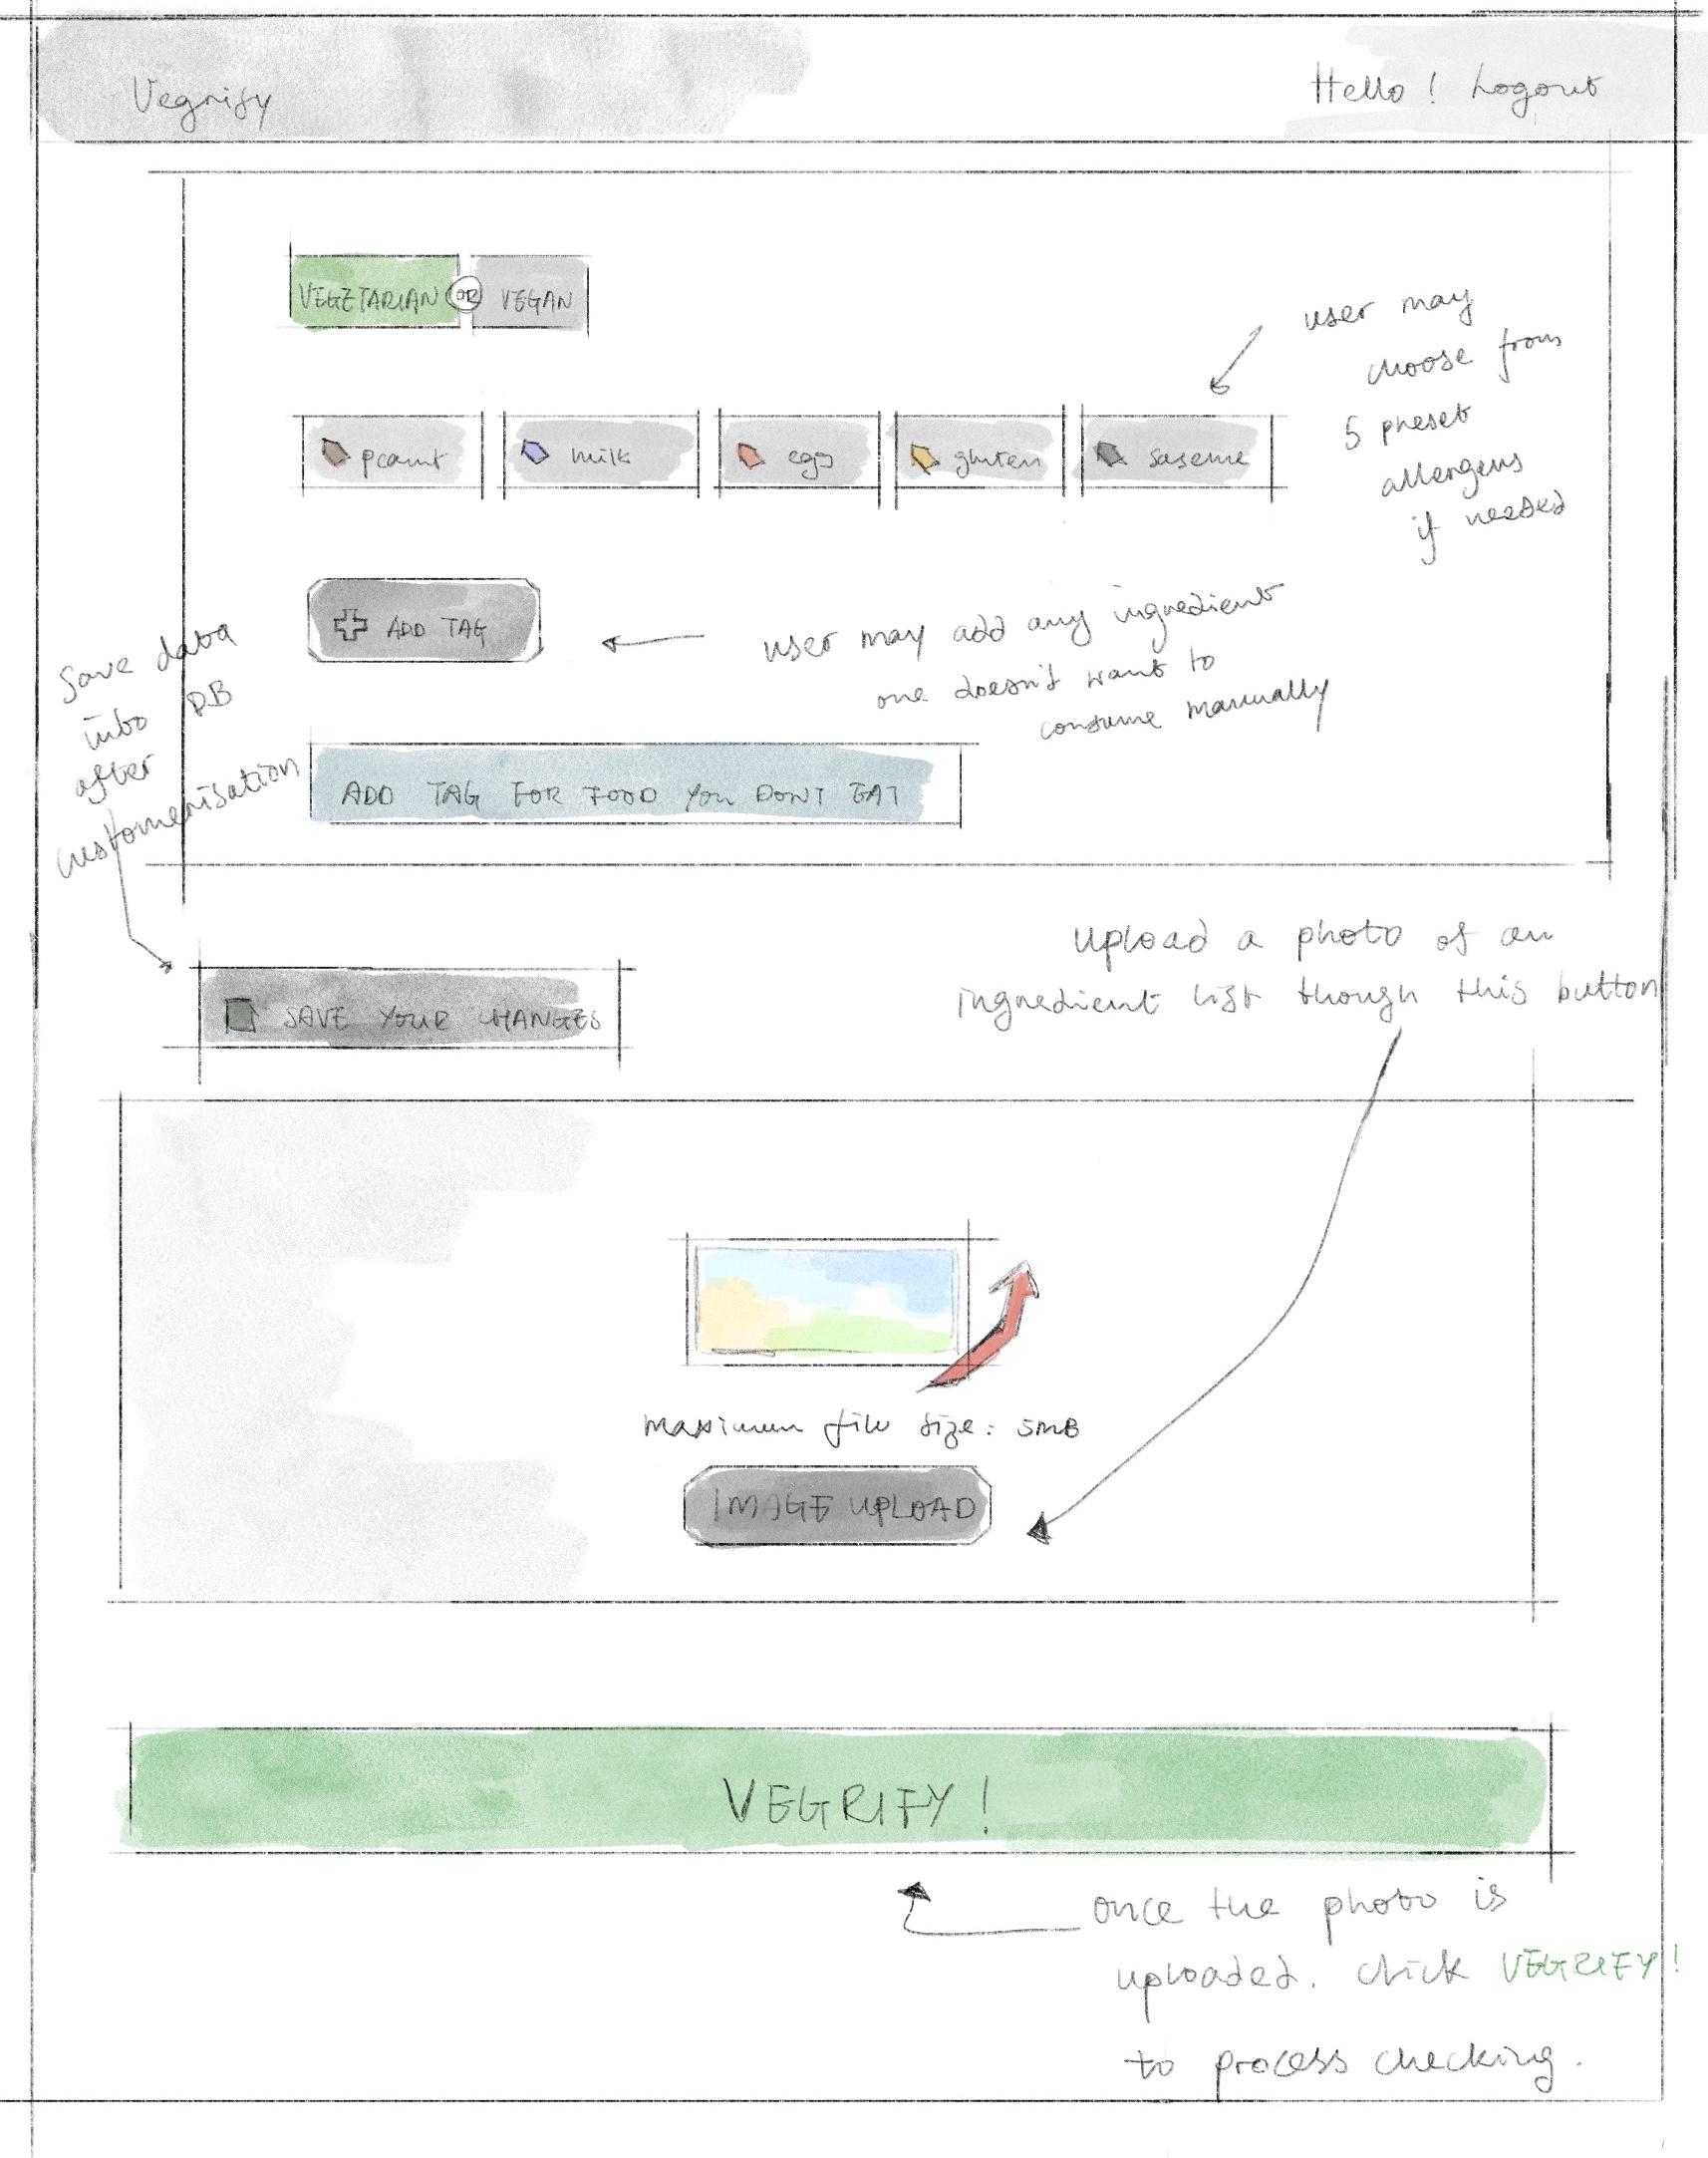 Vegrify
Hello! Logout
VEGETARIAN OR VEGAN
user may
choose from
5 preset
allergens
if needed
peanut milk egg gluten saseme
ADD TAG
user may add any ingredient
one doesn't want to
consume manually
save data
into DB
after
customerisation
ADD TAG FOR FOOD YOU DONT EAT
upload a photo of an
ingredient list though this button
SAVE YOUR CHANGES
maximum file size: 5MB
IMAGE UPLOAD
VEGRIFY!
once the photo is
uploaded. click VEGRIFY!
to process checking.